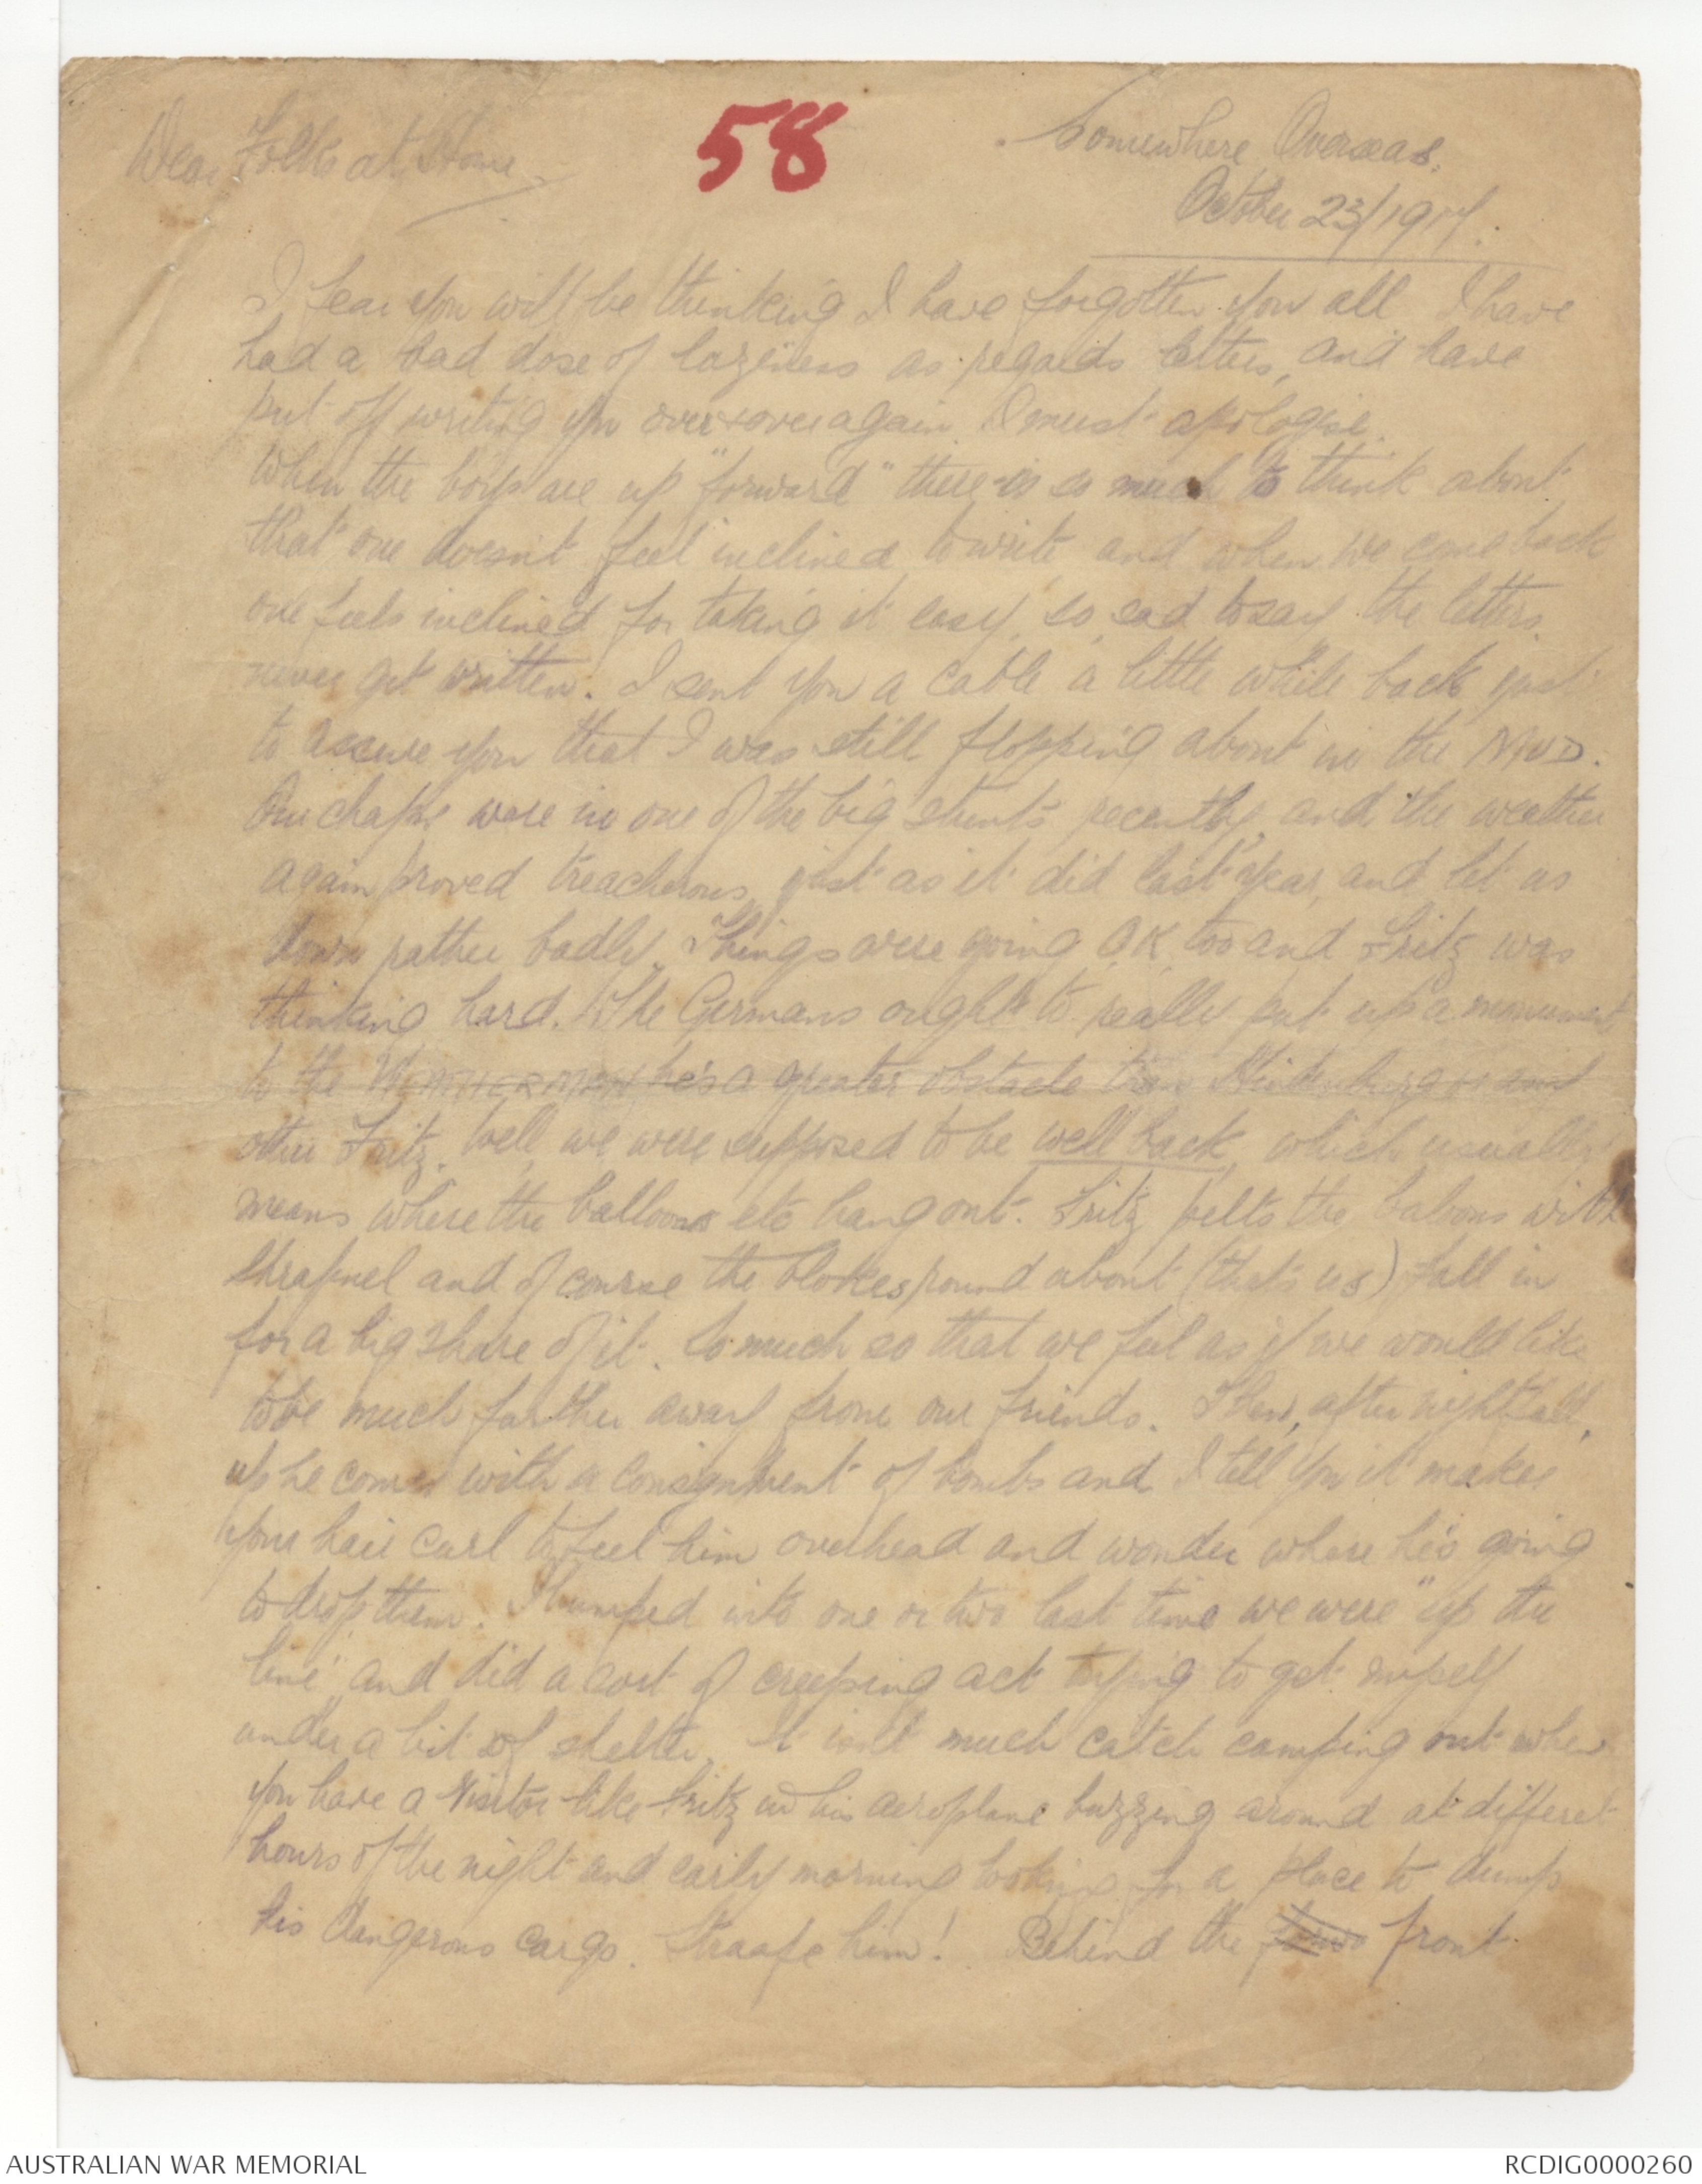 58
Somewhere Overseas.
October 23/1917.
Dear Folks at Home
I fear you will be thinking I have forgotten you all I have
had a bad dose of laziness as regards letters, and have
put off writing you over & over again. I must apologise.
When the boys are up "forward" there is so much to think about
that one doesn't feel inclined to write and when we come back
one feels inclined for taking it easy, so, sad to say the letters
never get written. I sent you a cable a little while back just
to assure you that I was still flopping about in the MUD.
Our chaps were in one of the big stunts recently, and the weather
again proved treacherous, just as it did last year, and let us
down rather badly. Things were going O.K. too and Fritz was
thinking hard. The Germans ought to really put up a monument
to the WEATHERMAN he's a greater obstacle than Hindenburg or any
other Fritz. Well we were supposed to be well back, which usually
means where the balloons etc hang out. Fritz pelts the baloons with
shrapnel and of course the blokes round about (that's us) fall in
for a big share of it. So much so that we feel as if we would like
to be much further away from our friends. Then, after nightfall,
up he comes with a consignment of bombs and I tell you it makes
your hair curl to feel him overhead and wonder where he's going
to drop them. I bumped into one or two last time we were "up the
line" and did a sort of creeping act trying to get myself
under a bit of shelter. It isn't much catch camping out when
you have a visitor like Fritz in his aeroplane buzzing around at different
hours of the night and early morning looking for a place to dump
his dangerous cargo. Straafe him! Behind the front
AUSTRALIAN WAR MEMORIAL
RCDIG0000260